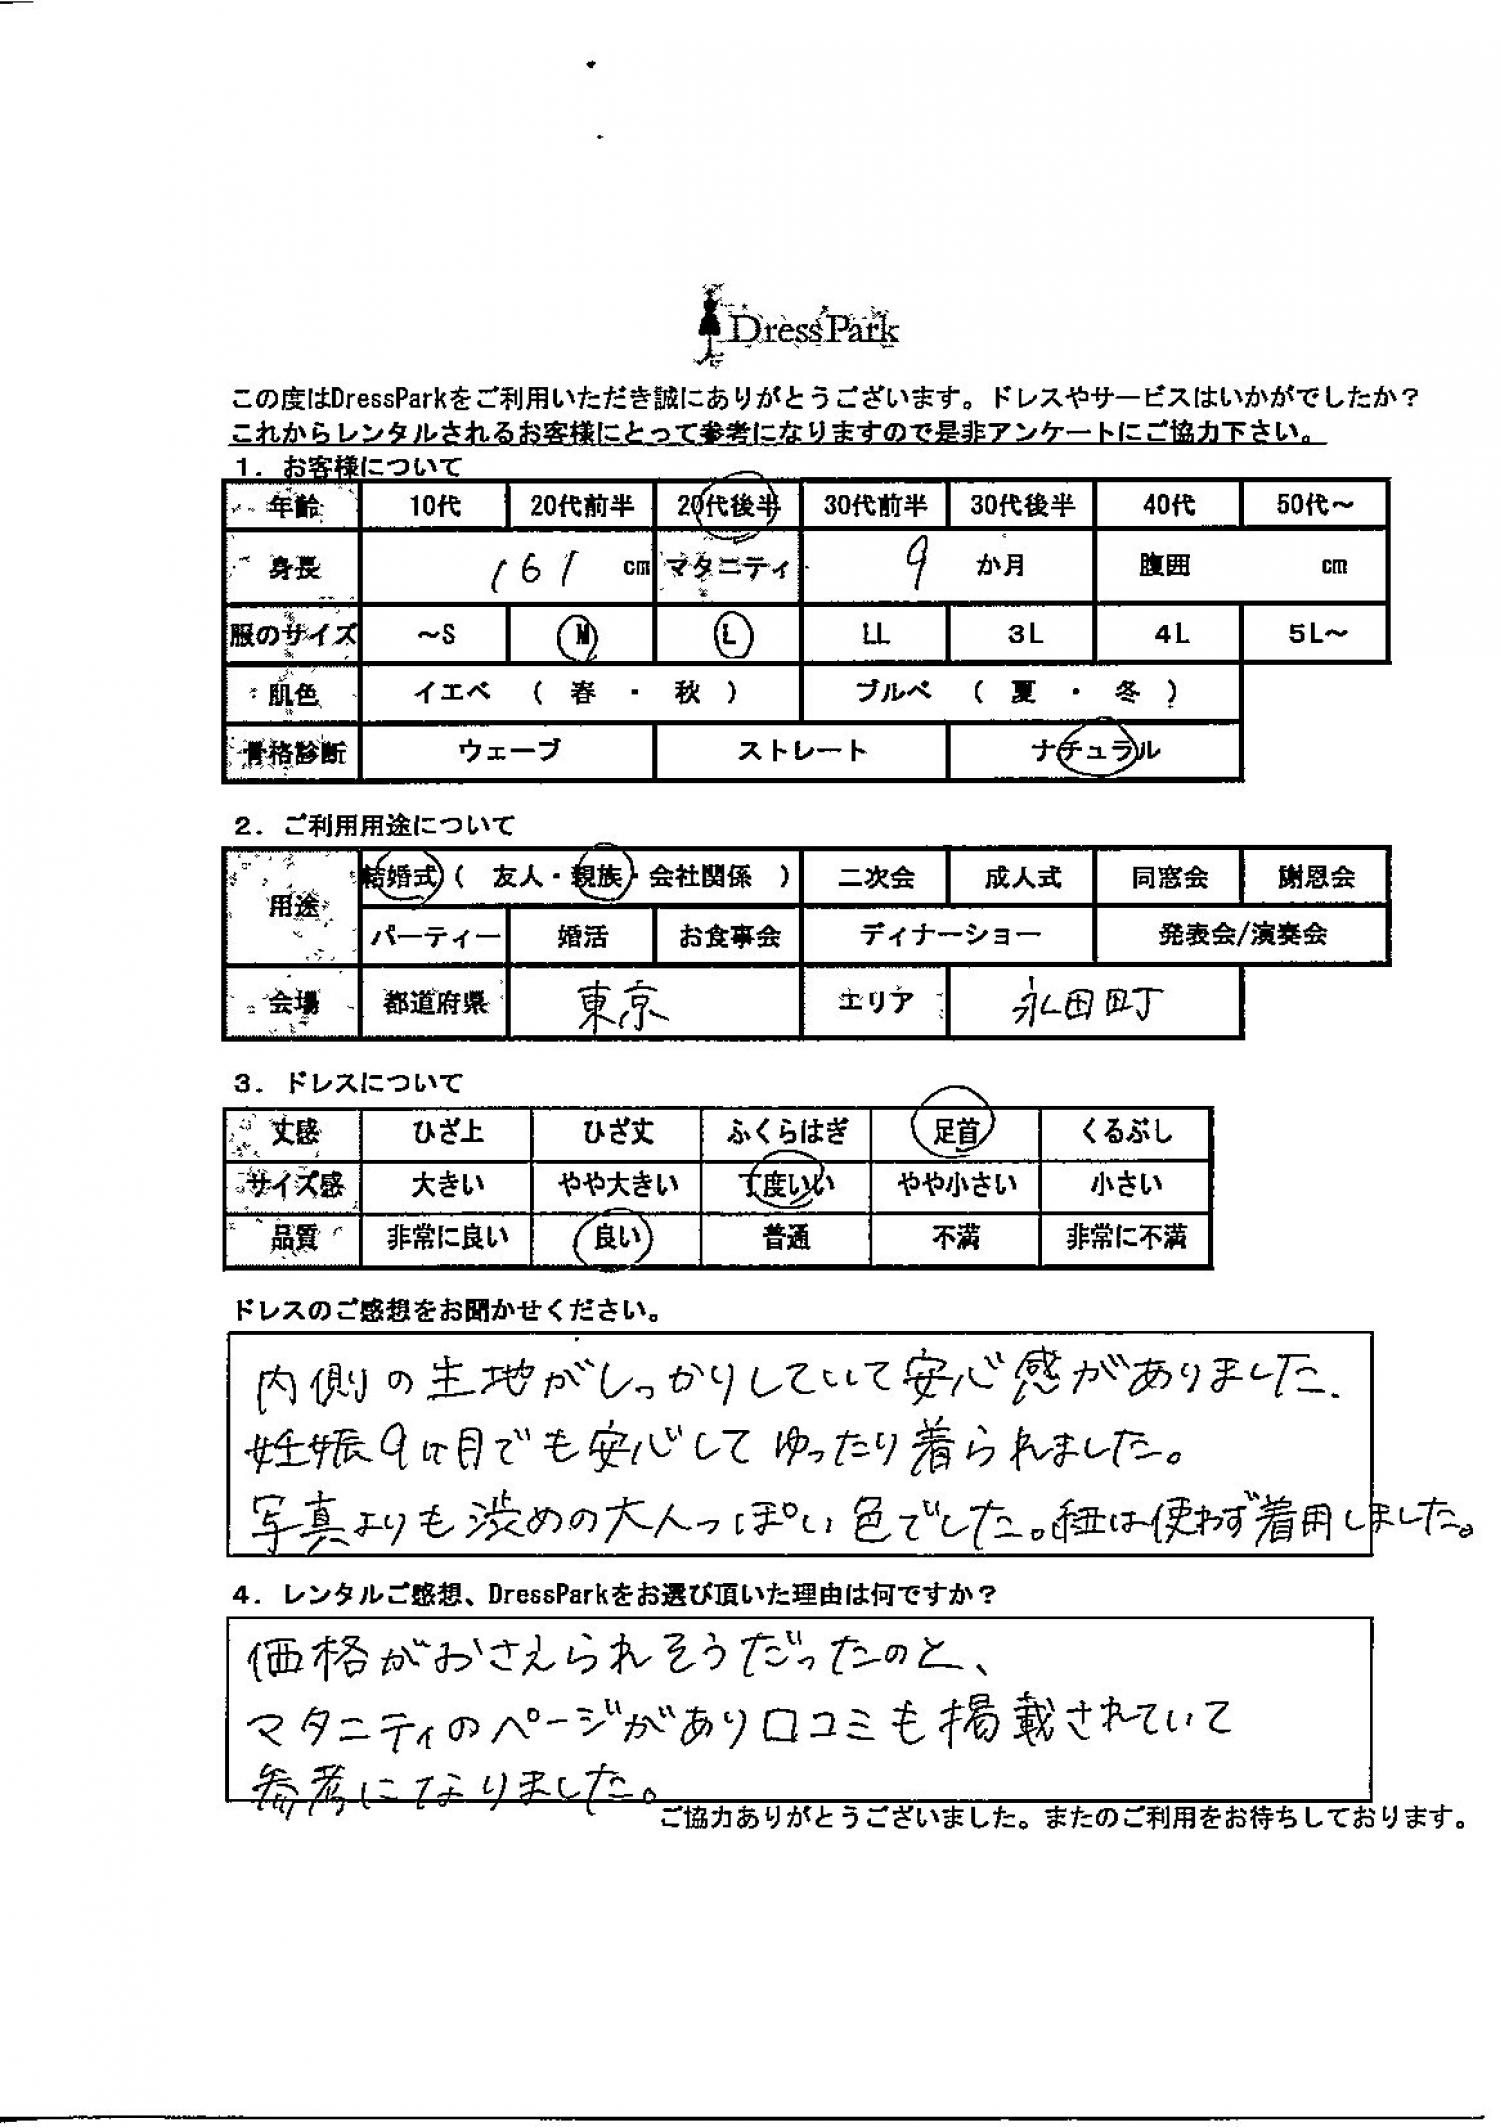 DressPark
この度はDressParkをご利用いただき誠にありがとうございます。ドレスやサービスはいかがでしたか？
これからレンタルされるお客様にとって参考になりますので是非アンケートにご協力下さい。
1. お客様について
年齢 10代 20代前半 20代後半 30代前半 30代後半 40代 50代～
身長 161 cm マタニティ 9 か月 腹囲 cm
服のサイズ ～S M L LL 3L 4L 5L～
肌色 イエベ ( 春 ・ 秋 ) ブルベ ( 夏 ・ 冬 )
骨格診断 ウェーブ ストレート ナチュラル
2. ご利用用途について
用途 結婚式 ( 友人・親族・会社関係 ) 二次会 成人式 同窓会 謝恩会
パーティー 婚活 お食事会 ディナーショー 発表会/演奏会
会場 都道府県 東京 エリア 永田町
3. ドレスについて
丈感 ひざ上 ひざ丈 ふくらはぎ 足首 くるぶし
サイズ感 大きい やや大きい 丁度いい やや小さい 小さい
品質 非常に良い 良い 普通 不満 非常に不満
ドレスのご感想をお聞かせください。
内側の生地がしっかりしていて安心感がありました、
妊娠9ヶ月でも安心してゆったり着られました。
写真よりも渋めの大人っぽい色でした。紐は使わず着用しました。
4. レンタルご感想、DressParkをお選び頂いた理由は何ですか？
価格がおさえられそうだったのと、
マタニティのページがあり口コミも掲載されていて
参考になりました。
ご協力ありがとうございました。またのご利用をお待ちしております。